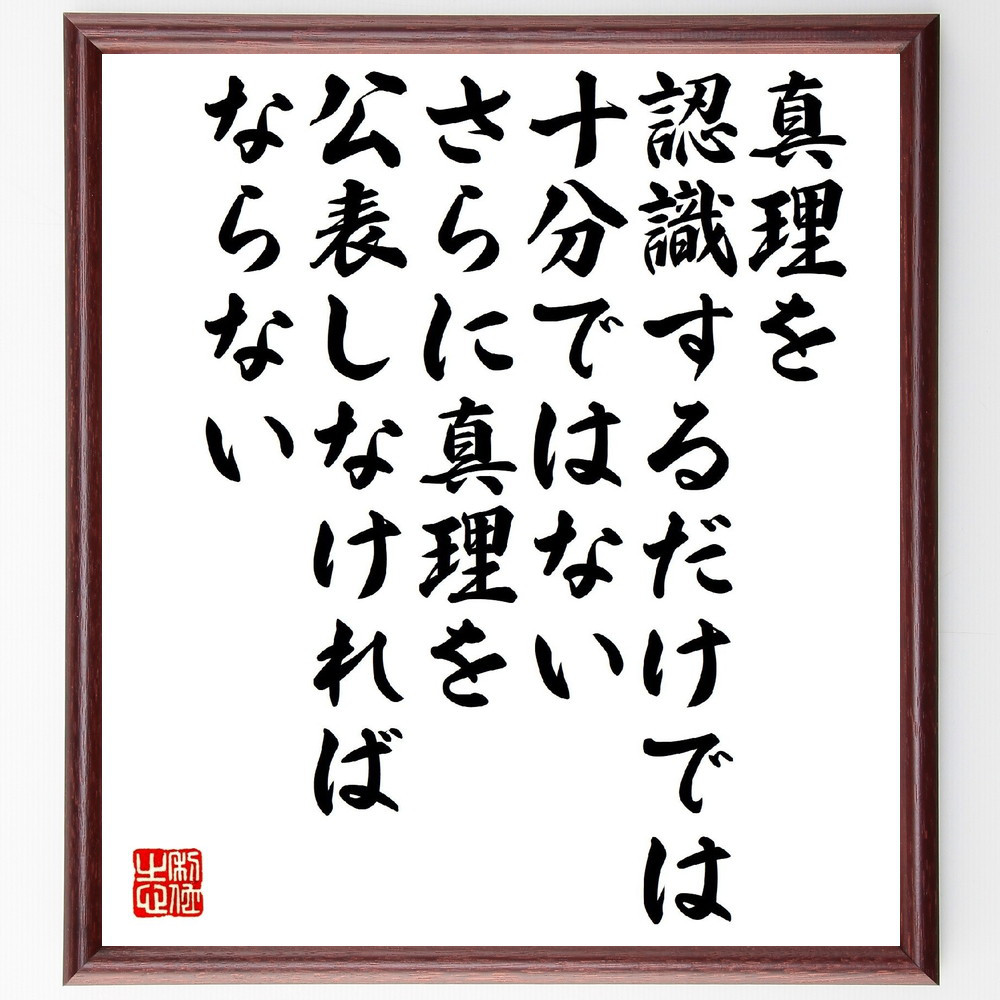 真理を
認識するだけでは
十分ではない
さらに真理を
公表しなければ
ならない